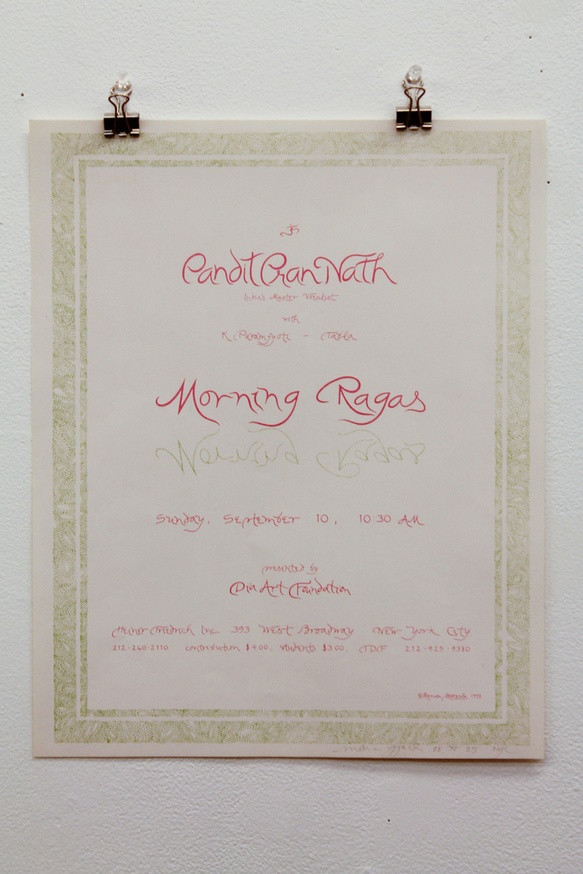 ॐ
Pandit Pran Nath
India's Master Vocalist
with
K. Paramjyoti - Tabla
Morning Ragas
Sunday, September 10, 10:30 AM
presented by
Dia Art Foundation
Heiner Friedrich Inc. 393 West Broadway New York City
212-260-2110 contribution $4.00, students $3.00, TDF 212-925-9380
1978